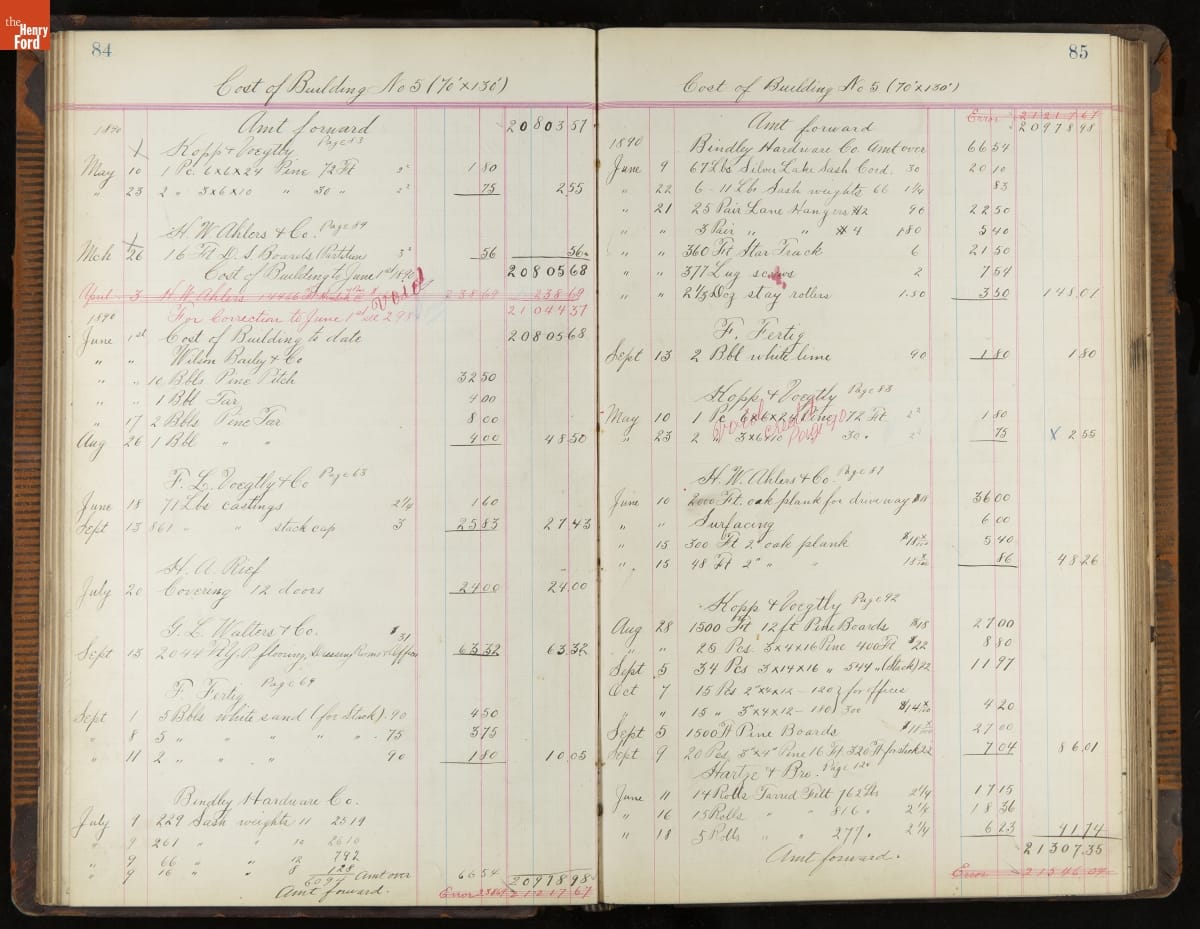 the
Henry
Ford
84
Cost of Building No 5 (70'x130')
1890 Amt forward 20803.57
Kopp & Voegtly Page 83
May 10 1 Pc. 6x6x24 Pine 72 Ft 2² 1 80
" 23 2 " 3x6x10 " 30 " 2² 75 2.55
H. W. Ahlers & Co. Page 84
Mch 26 16 Ft D. S. Boards Partition 3² 56 56
Cost of Building to June 1st 1890 20805 68
April 3 H. W. Ahlers 238 69 238 69
void
1890 For Correction to June 1st see 298 21044 37
June 1st Cost of Building to date 20805 68
" " Wilson Bailey & Co
" " 10 Bbls Pine Pitch 32 50
" " 1 Bbl Tar 4 00
" 17 2 Bbls Pine Tar 8 00
Aug 26 1 Bbl " " 4 00 48 50
F. L. Voegtly & Co Page 63
June 18 71 Lbs castings 2¼ 1 60
Sept 13 861 " " stack cap 3 25 83 27 43
H. A. Rief
July 20 Covering 12 doors 24 00 24.00
G. L. Walters & Co.
Sept 13 2044 Ft Y. P. flooring, Dressing Rooms & Offices $31 63 32 63 32
F. Fertig Page 64
Sept 1 5 Bbls white sand (for Stack) .90 4 50
" 8 5 " " " " " .75 3 75
" 11 2 " " " 90 1 80 10.05
Bindley Hardware Co.
July 9 229 Sash weights 11 2519
" 9 261 " " 10 2610
" 9 66 " " 12 792
" 9 16 " " 8 128
6094 Amt over 66 54 20978 98
Amt forward. Error 238 69 21217 67
85
Cost of Building No 5 (70'x130')
Error 21217 67
1890 Amt forward 20978 98
Bindley Hardware Co. Amt over 66 54
June 9 67 Lbs Silver Lake Sash Cord. 30 20 10
" 22 6 - 11 Lbs Sash weights 66 1¼ 83
" 21 25 Pair Lane Hangers #2 90 22 50
" " 3 Pair " " #4 1 80 5 40
" " 360 Ft Star Track 6 21 50
" " 377 Lug screws 2 7 54
" " 2⅓ Doz stay rollers 1.50 3 50 148.01
F. Fertig
Sept 13 2 Bbl white lime 90 1 80 1 80
Kopp & Voegtly Page 83
May 10 1 Pc 6x6x24 Pine 72 Ft 2² 1 80
" 23 2 " 3x6x10 30 " 2² 75 x 2.55
H. W. Ahlers & Co. Page 81
June 10 2000 Ft. oak plank for driveway $18 36 00
" " Surfacing 6 00
" 15 300 Ft 2" oak plank $18 5 40
" 15 48 Ft 2" " " 18 86 48 26
Kopp & Voegtly Page 92
Aug 28 1500 Ft 12 ft Pine Boards $18 27 00
" " 25 Pcs. 3x4x16 Pine 400 Ft $22 8 80
Sept 5 34 Pcs 3x14x16 " 544 " (Stack) 22 11 97
Oct 7 15 Pcs 2"x4x12 - 120 for offices
" " 15 " 3"x4x12 - 180 300 $14 4 20
Sept 5 1500 Ft Pine Boards $18 27 00
Sept 9 20 Pcs, 3"x4" Pine 16 Ft. 320 Ft for stack 22 7 04 86.01
Hartze & Bro. Page 120
June 11 14 Rolls Tarred Felt 762 Lbs 2¼ 17 15
" 16 15 Rolls " " 816 " 2¼ 18 36
" 18 5 Rolls " " 277 " 2¼ 6 23 41 74
21307.35
Amt forward.
Error 21546 04